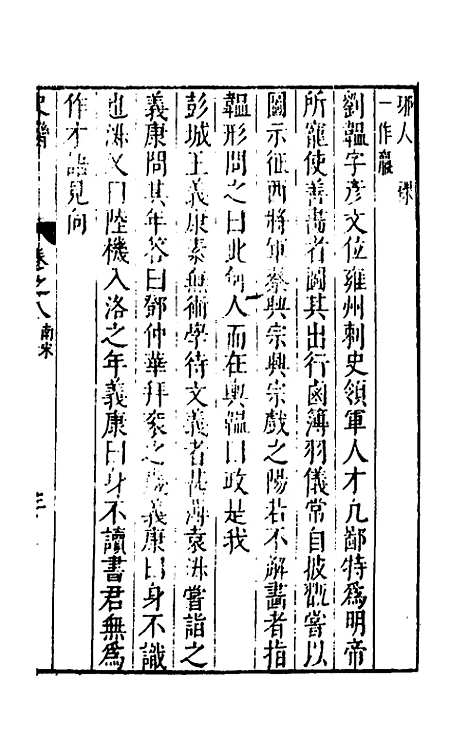 琊人
一作嚴
劉韞字彥文位雍州刺史領軍人才凡鄙特爲明帝
所寵使善畫者圖其出行鹵簿羽儀常自披翫嘗以
圖示征西將軍蔡興宗興宗戲之陽若不解畫者指
韞形問之曰此何人而在輿韞曰政是我
彭城王義康素無術學待文義者甚薄袁淑嘗詣之
義康問其年荅曰鄧仲華拜袞之歲義康曰身不識
也淑又曰陸機入洛之年義康曰身不讀書君無爲
作才語見向
卷之八 南宋